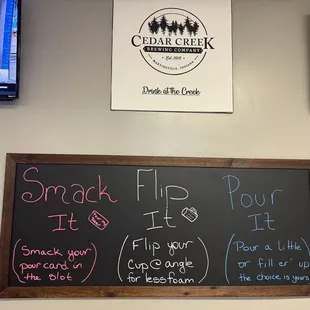 CEDAR CREEK
BREWING COMPANY
Est. 2019
MARTINSVILLE, INDIANA
Drink at the Creek
Smack
It
(Smack your
pour card in
the slot)
Flip
It
(Flip your
cup @ angle
for less foam)
Pour
It
(Pour a little
or fill er' up
the choice is yours)